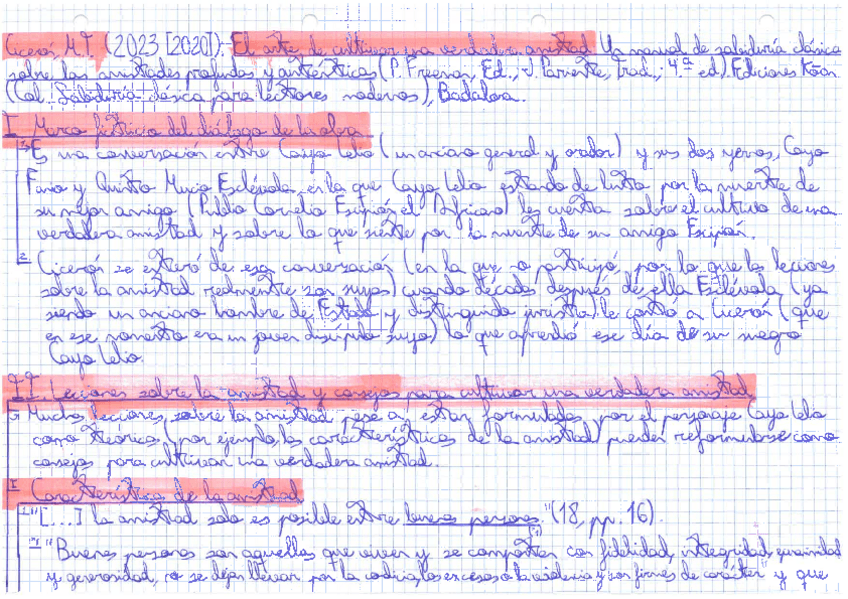 Cicerón, M.T. (2023 [2020]). El arte de cultivar una verdadera amistad. Un manual de sabiduría clásica
sobre las amistades profundas y auténticas (P. Freeman, Ed., J. Parriente, Trad., 4.ª ed). Ediciones Kōan
(Col. Sabiduría clásica para lectores modernos), Badalona.
I Marco ficticio del diálogo de la obra
1. Es una conversación entre Cayo Lelio (un anciano general y orador) y sus dos yernos, Cayo
Fanio y Quinto Mucio Escévola, en la que Cayo Lelio estando de luto por la muerte de
su mejor amigo (Publio Cornelio Escipión el Africano) les cuenta sobre el cultivo de una
verdadera amistad y sobre lo que siente por la muerte de su amigo Escipión.
2. Cicerón se enteró de esa conversación (en la que no participó por lo que las lecciones
sobre la amistad realmente son suyas) cuando décadas después de ella Escévola (ya
siendo un anciano hombre de Estado y distinguido jurista) le contó a Cicerón (que
en ese momento era un joven discípulo suyo) lo que aprendió ese día de su suegro
Cayo Lelio.
II. Lecciones sobre la amistad y consejos para cultivar una verdadera amistad
Muchas lecciones sobre la amistad, pese a estar formuladas por el personaje Cayo Lelio
como teóricas (por ejemplo, las características de la amistad) pueden reformularse como
consejos para cultivar una verdadera amistad.
I Características de la amistad
1. "[...] la amistad solo es posible entre buenas personas." (18, pp. 16).
"Buenas personas son aquellas que viven y se comportan con fidelidad, integridad, equidad
y generosidad, no se dejan llevar por la codicia, los excesos o la violencia y son firmes de carácter" y que